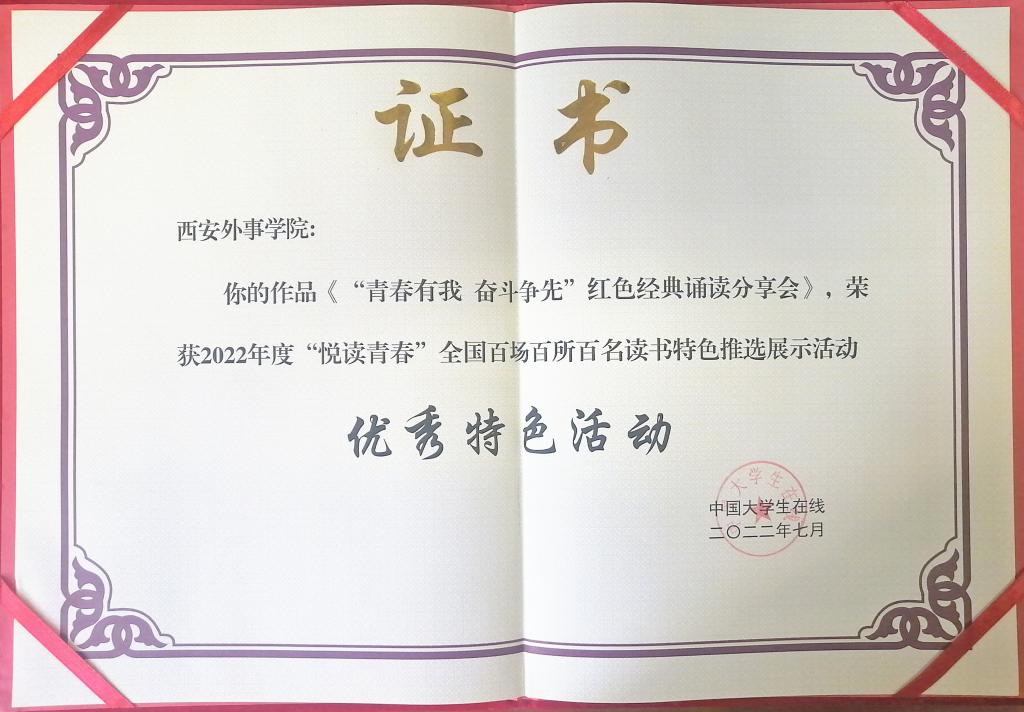 证书
西安外事学院:
你的作品《“青春有我 奋斗争先”红色经典诵读分享会》，荣
获2022年度“悦读青春”全国百场百所百名读书特色推选展示活动
优秀特色活动
大学生在线
中国大学生在线
二〇二二年七月